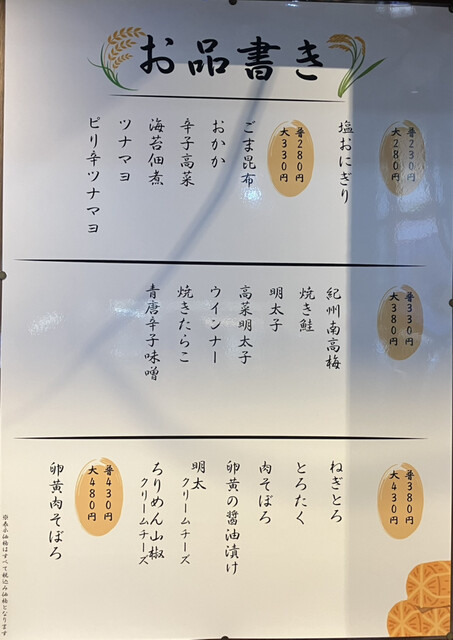 お品書き
普230円
大280円
塩おにぎり
普280円
大330円
ごま昆布
おかか
辛子高菜
海苔佃煮
ツナマヨ
ピリ辛ツナマヨ
普330円
大380円
紀州南高梅
焼き鮭
明太子
高菜明太子
ウインナー
焼きたらこ
青唐辛子味噌
普380円
大430円
ねぎとろ
とろたく
肉そぼろ
卵黄の醤油漬け
明太
クリームチーズ
ちりめん山椒
クリームチーズ
普430円
大480円
卵黄肉そぼろ
※表示価格はすべて税込み価格となります